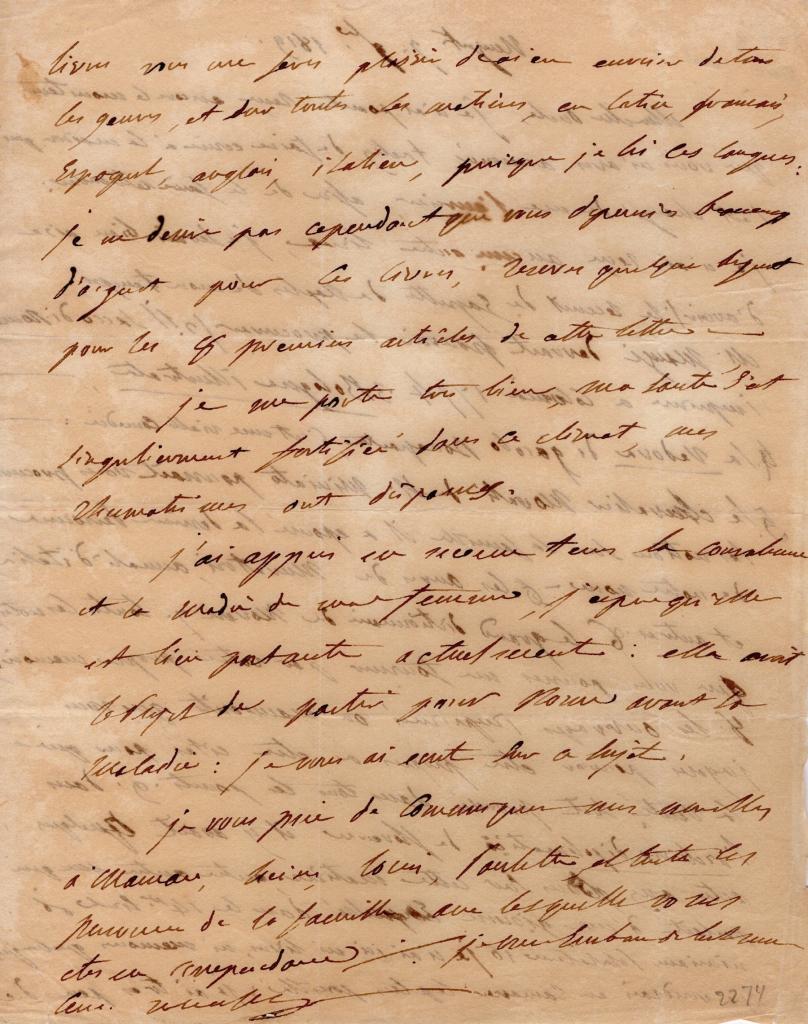 livres vous me ferez plaisir de m'en envoyer de tous
les genres, et sur toutes les matières, en latin, francais,
Espagnol, anglais, italien, puisque je lis ces langues:
je ne desire pas cependant que vous depensies beaucoup
d'argent pour ces livres, reserves quelque argent
pour les 8 premiers articles de cette lettre —
je me porte tres bien, ma santé s'est
singulierement fortifiée dans ce climat, mes
Rhumatismes ont disparus.
j'ai appris en meme tems la
et la maladie de ma femme, j'espere qu'elle
est bien portante actuellement : elle avait
le projet de partir pour Rome avant la
Maladie : je vous ai ecrit sur ce sujet.
je vous prie de Comuniquer mes nouvelles
a Maman, Louis, Paulette et toute les
personne de la famille avec lesquelle vous
etes en correspondance : je vous Embrasse